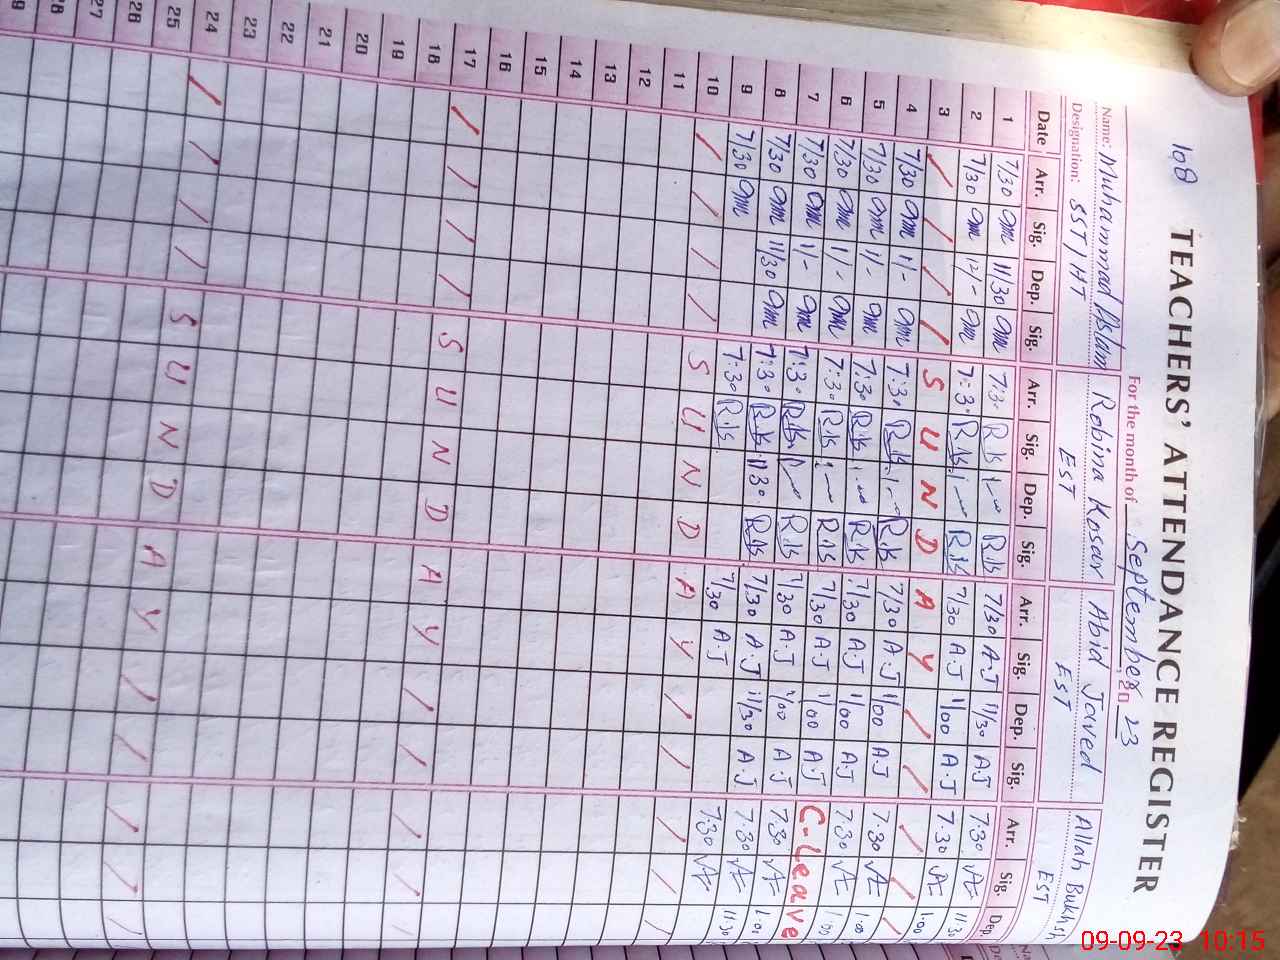 108 TEACHERS' ATTENDANCE REGISTER
For the month of September, 20 23
Name: Muhammad Aslam Robina Kosar Abid Javed Allah Bukhsh
Designation: SST/HT EST EST EST
Date Arr. Sig. Dep. Sig. Arr. Sig. Dep. Sig. Arr. Sig. Dep. Sig. Arr. Sig. Dep.
1 7/30 11/30 7:30 1 7/30 A.J 11/30 A.J 7:30 11:30
2 7/30 12/- 7:30 1 7/30 A.J 1/00 A.J 7:30 1:00
3 SUNDAY
4 7/30 1/- 7:30 1 7/30 A.J 1/00 A.J 7:30 1:00
5 7/30 1/- 7:30 1 7/30 A.J 1/00 A.J 7:30 1:00
6 7/30 1/- 7:30 1 7/30 A.J 1/00 A.J C-Leave
7 7/30 1/- 7:30 1 7/30 A.J 1/00 A.J 7:30 1:00
8 7/30 11/30 7:30 11:30 7/30 A.J 11/30 A.J 7:30 11:30
9 7/30 7:30 7/30 A.J 7:30
10 SUNDAY
11
12
13
14
15
16
17 SUNDAY
18
19
20
21
22
23
24 SUNDAY
25
26
27
28
09-09-23 10:15